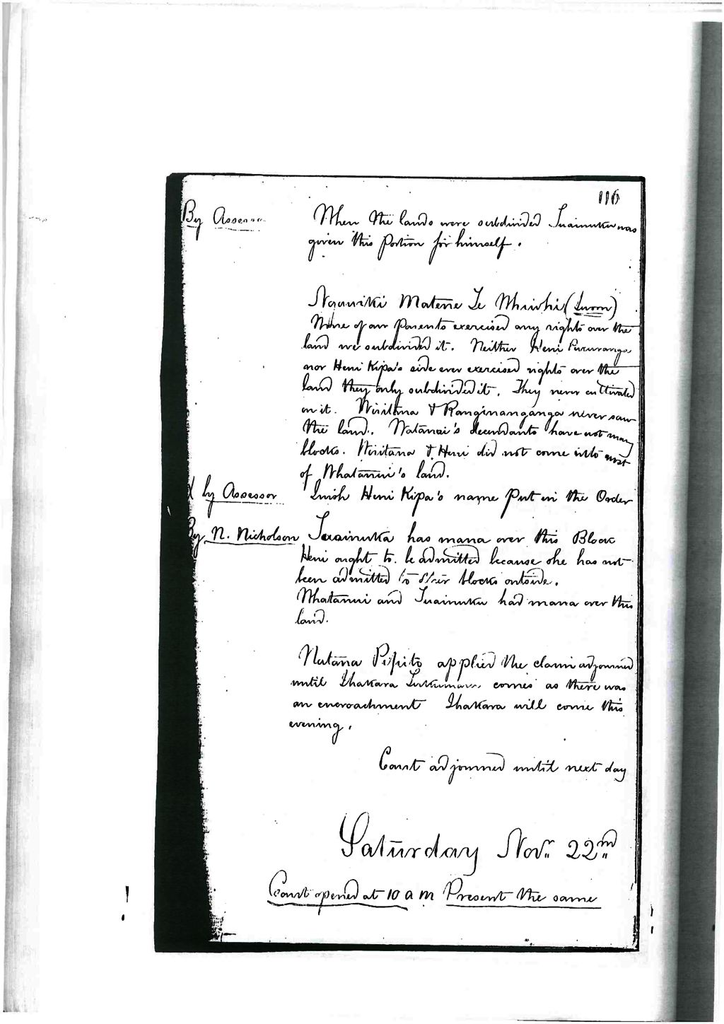 116
By Assessor When the lands were subdivided Tuainuku was
given this portion for himself.
Matene Te Whiwhi (Sworn)
None of our parents exercised any rights over the
land we subdivided it. Neither Heni
nor Heni Kipa's side ever exercised rights over the
land they only subdivided it. They never cultivated
on it. Wiritana & Ranginanganga never saw
the land. Watanui's decendants have not many
blocks. Wiritana & Heni did not come into
of Whatanui's land.
by Assessor I wish Heni Kipa's name put in the Order
By N. Nicholson Tuainuku has mana over this Block
Heni ought to be admitted because she has not
been admitted to other blocks outside.
Whatanui and Tuainuku had mana over this
land.
Pipito applied the claim adjourned
until Ihakara comes as there was
an encroachment Ihakara will come this
evening.
Court adjourned until next day
Saturday Novr. 22nd
Court opened at 10 a m Present the same